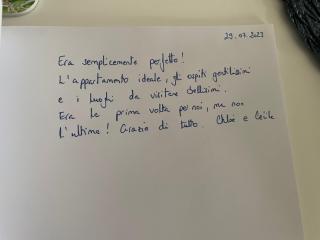 29.07.2023
Era semplicemente perfetto!
L'appartamento ideale, gli ospiti gentilissimi
e i luoghi da visitare bellissimi.
Era la prima volta per noi, ma non
l'ultima! Grazie di tutto. Chloé e Cécile